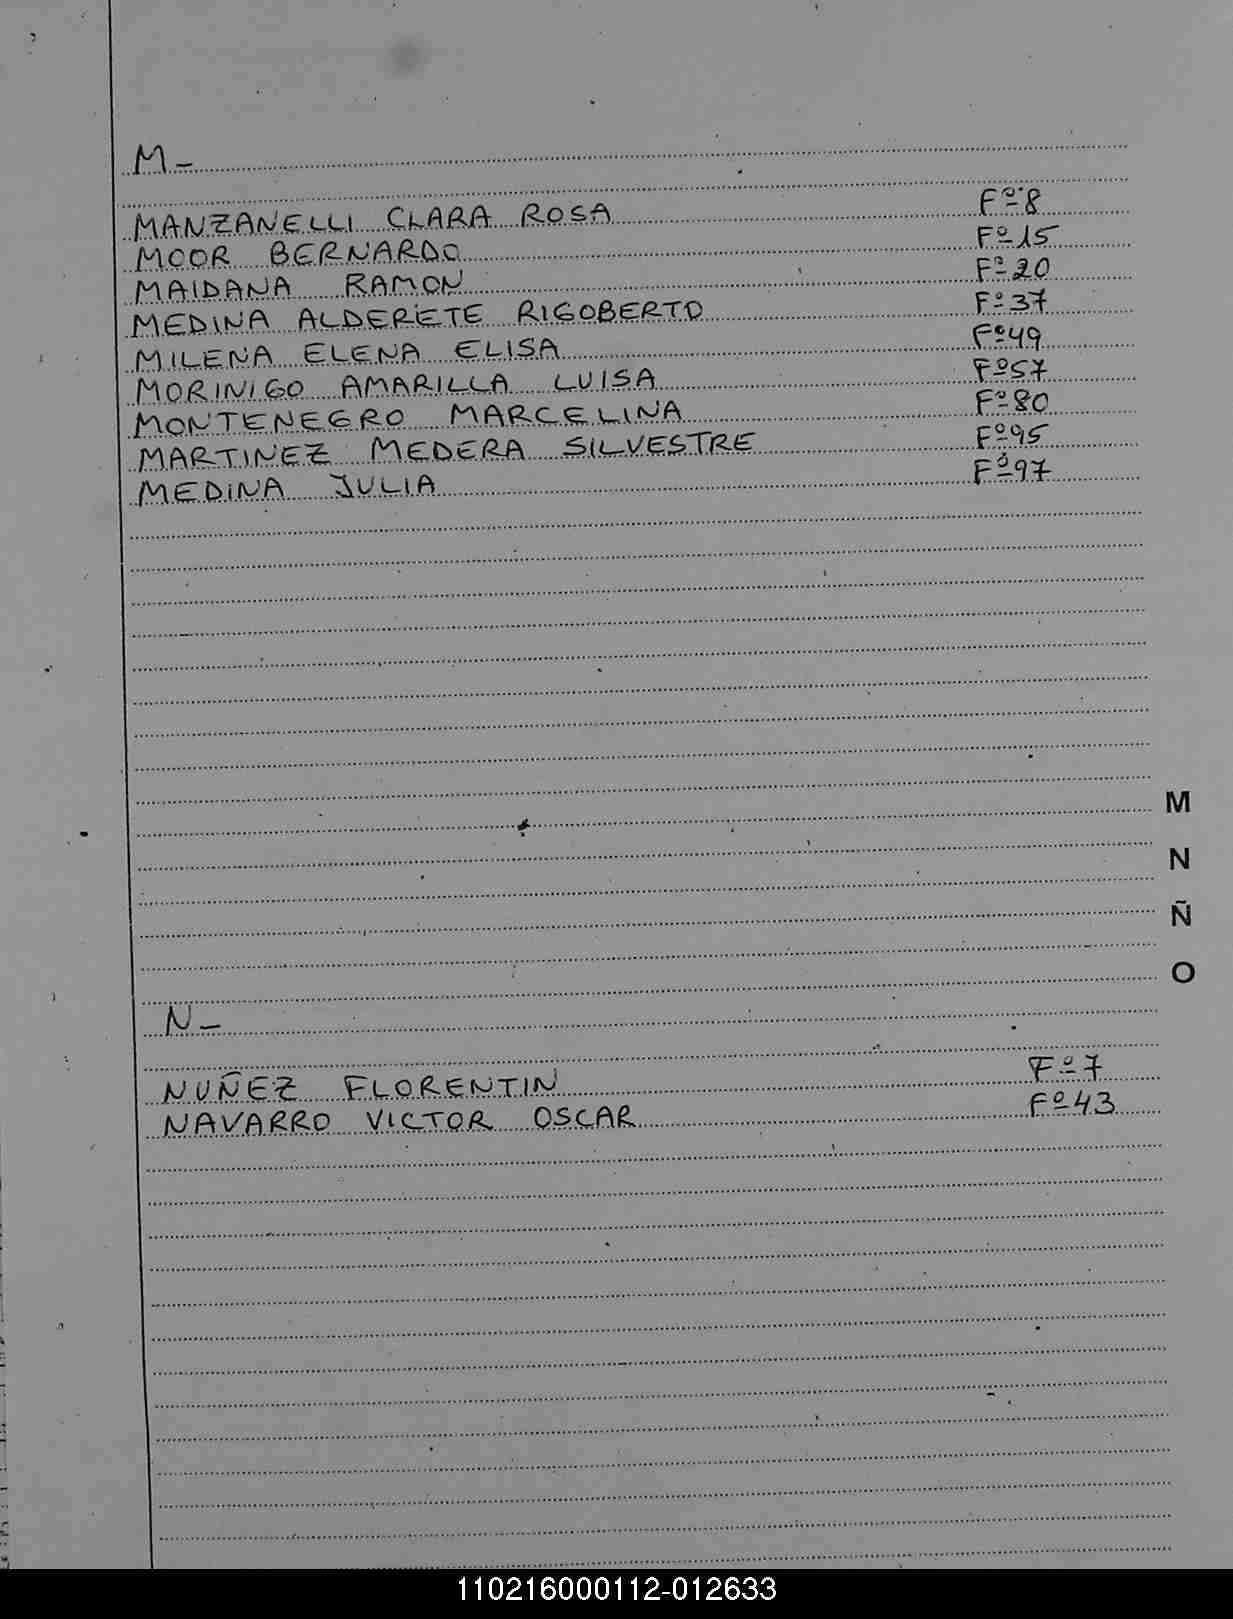 M-
MANZANELLI CLARA ROSA Fº 8
MOOR BERNARDO Fº 15
MAIDANA RAMON Fº 20
MEDINA ALDERETE RIGOBERTO Fº 37
MILENA ELENA ELISA Fº 49
MORINIGO AMARILLA LUISA Fº 57
MONTENEGRO MARCELINA Fº 80
MARTINEZ MEDERA SILVESTRE Fº 95
MEDINA JULIA Fº 97
M
N
Ñ
O
N-
NUÑEZ FLORENTIN Fº 7
NAVARRO VICTOR OSCAR Fº 43
110216000112-012633